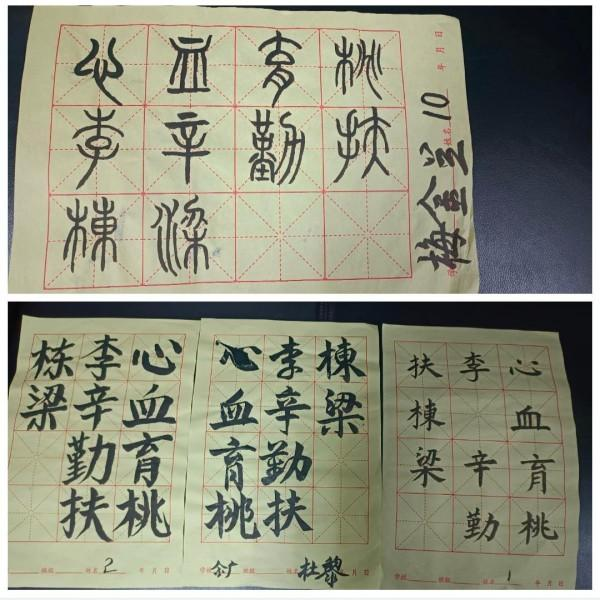 心血育桃
李辛勤扶
棟梁
姓名 10 年 月 日
心血育桃
李辛勤扶
栋梁
班级 姓名 2 年 月 日
心血育桃
李辛勤扶
棟梁
学校 班级 姓名 杜黎 年 月 日
心血育桃
李辛勤
扶棟梁
学校 班级 姓名 1 年 月 日